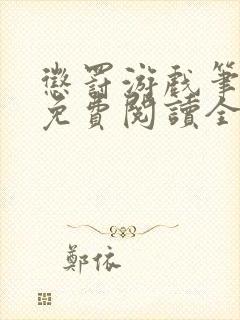 懲罰游戲筆
免費閱讀全
鄭依